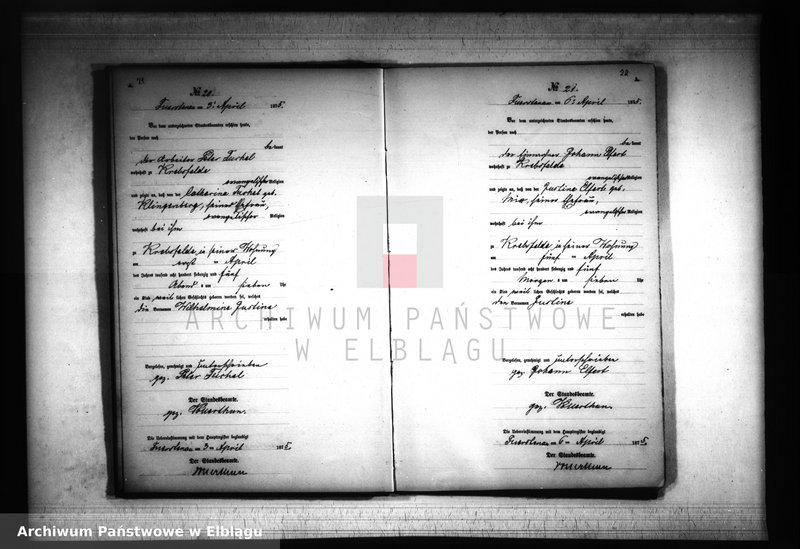 № 20.
Fuerstenau am 3. April 1875.
Vor dem unterzeichneten Standesbeamten erschien heute,
der Person nach
bekannt
der Arbeiter Peter Turkel
wohnhaft zu Krebsfelde
evangelischer Religion
und zeigte an, daß von der Catharina Turkel geb.
Klingenberg, seiner Ehefrau,
evangelischer Religion
wohnhaft bei ihm
zu Krebsfelde in seiner Wohnung
am April
des Jahres tausend acht hundert siebenzig und fünf
Abend um sieben Uhr
ein Kind weiblichen Geschlechts geboren worden sei, welches
die Vornamen Wilhelmine Justine
erhalten habe
Vorgelesen, genehmigt und unterschrieben
gez. Peter Turkel
Der Standesbeamte.
gez.
Die Uebereinstimmung mit dem Hauptregister beglaubigt
Fuerstenau am 3. April 1875
Der Standesbeamte.
22
№ 21.
Fuerstenau am 6. April 1875.
Vor dem unterzeichneten Standesbeamten erschien heute,
der Person nach
bekannt
der Johann Elfert
wohnhaft zu Krebsfelde
evangelischer Religion
und zeigte an, daß von der Justine Elfert geb.
seiner Ehefrau,
evangelischer Religion
wohnhaft bei ihm
zu Krebsfelde in seiner Wohnung
am fünf April
des Jahres tausend acht hundert siebenzig und fünf
Morgen um sieben Uhr
ein Kind weiblichen Geschlechts geboren worden sei, welches
den Vornamen Justine
erhalten habe
Vorgelesen, genehmigt und unterschrieben
gez. Johann Elfert
Der Standesbeamte.
gez.
Die Uebereinstimmung mit dem Hauptregister beglaubigt
Fuerstenau am 6. April 1875
Der Standesbeamte.
ARCHIWUM PAŃSTWOWE
W ELBLĄGU
Archiwum Państwowe w Elblągu